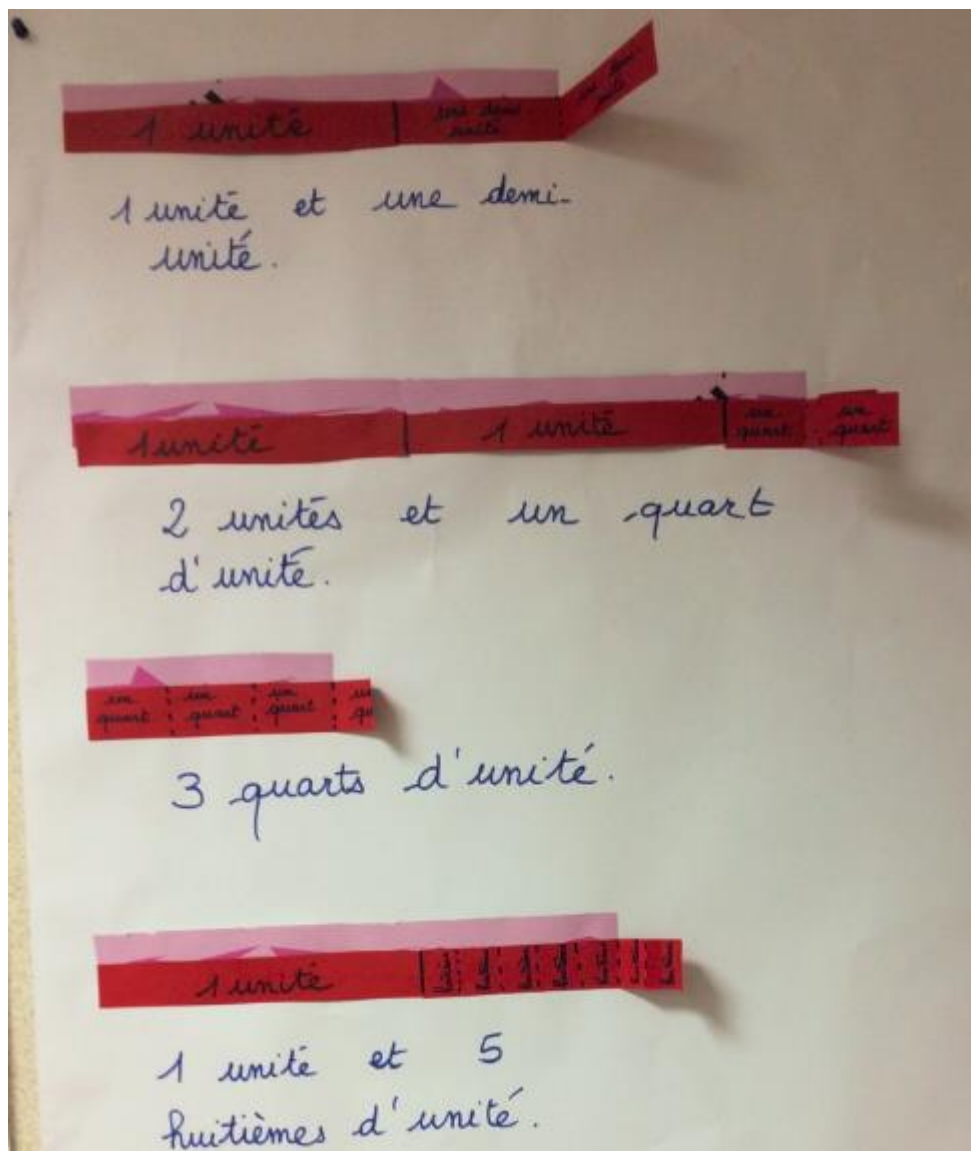 1 unité une demi unité une demi- unité
1 unité et une demi-
unité.
1 unité 1 unité un quart un quart
2 unités et un quart
d'unité.
un quart un quart un quart un qu
3 quarts d'unité.
1 unité
1 unité et 5
huitièmes d'unité.